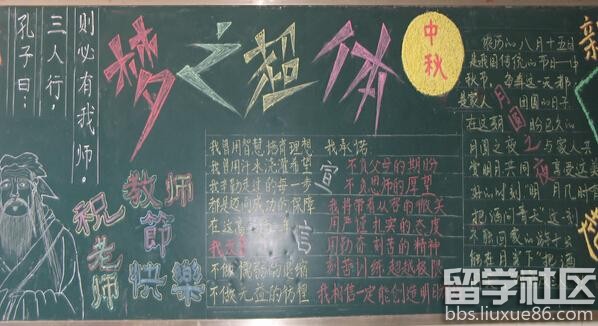 孔子曰：
三人行，
则必有我师。
梦之超体
中秋
祝老师
教师
節
快樂
我曾用智慧培育理想
我曾用汗水浇灌希望
我曾勤走过的每一步
都是迈向成功的保障
在这高
不做无益的彷徨
宣
信
我承诺
不负父母的期盼
不负恩师的厚望
我将带着从容的微笑
用严谨扎实的态度
用勤奋刻苦的精神
刻苦训练超越极限
我相信一定能创造明
农历的八月十五日
是我国传统的节日—中
秋节 每年这一天都
是家人 月 团圆的日子
在这期 圆 盼已久的
月圆之夜 与家人共
赏明月共同 夜 享受这美
好的时刻“明月几时
把酒问青天”这
不能回家的游子
能在月 下“把酒
留学社区
bbs.liuxue86.com